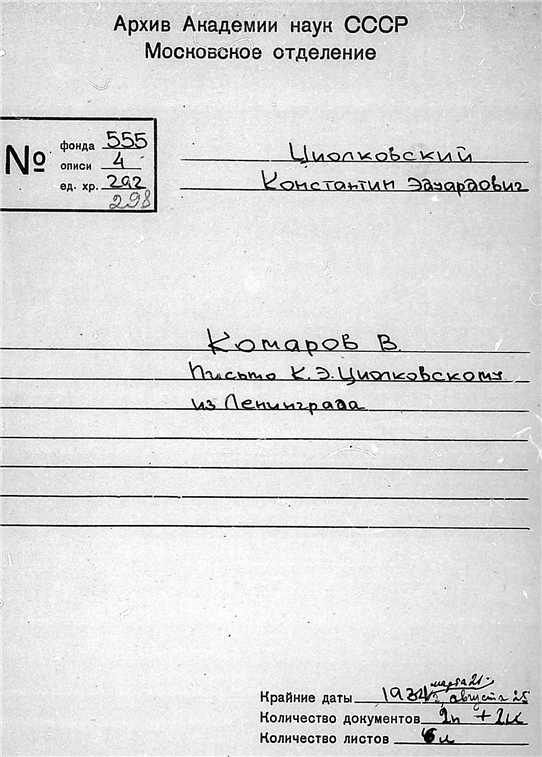 Архив Академии наук СССР
Московское отделение
№
фонда 555
описи 4
ед. хр. 292
298
Циолковский
Константин Эдуардович
Комаров В.
Письмо К.Э.Циолковскому
из Ленинграда
марта 21-
Крайние даты 1934 августа 25
Количество документов 2п + 2к
Количество листов 6л